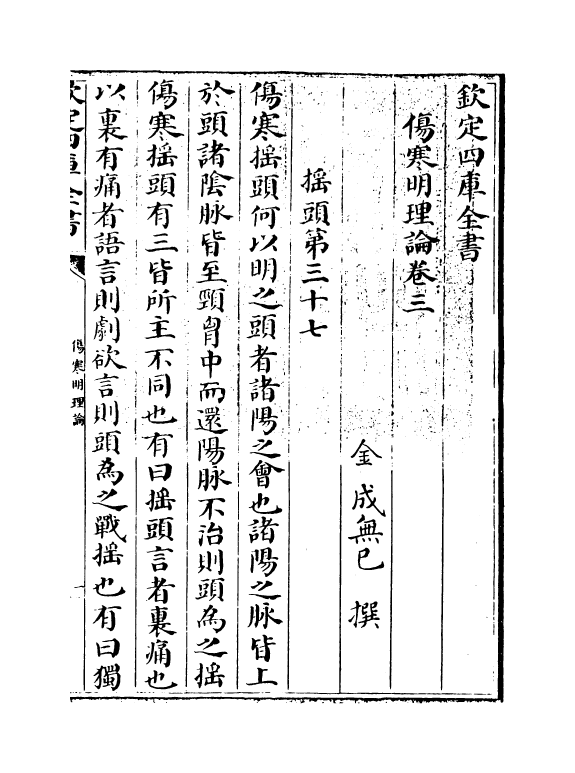 欽定四庫全書
傷寒明理論卷三
金 成無已 撰
揺頭第三十七
傷寒揺頭何以明之頭者諸陽之會也諸陽之脉皆上
於頭諸陰脉皆至頸胷中而還陽脉不治則頭為之揺
傷寒揺頭有三皆所主不同也有曰揺頭言者裏痛也
以裏有痛者語言則劇欲言則頭為之戰揺也有曰獨
欽定四庫全書
傷寒明理論
一